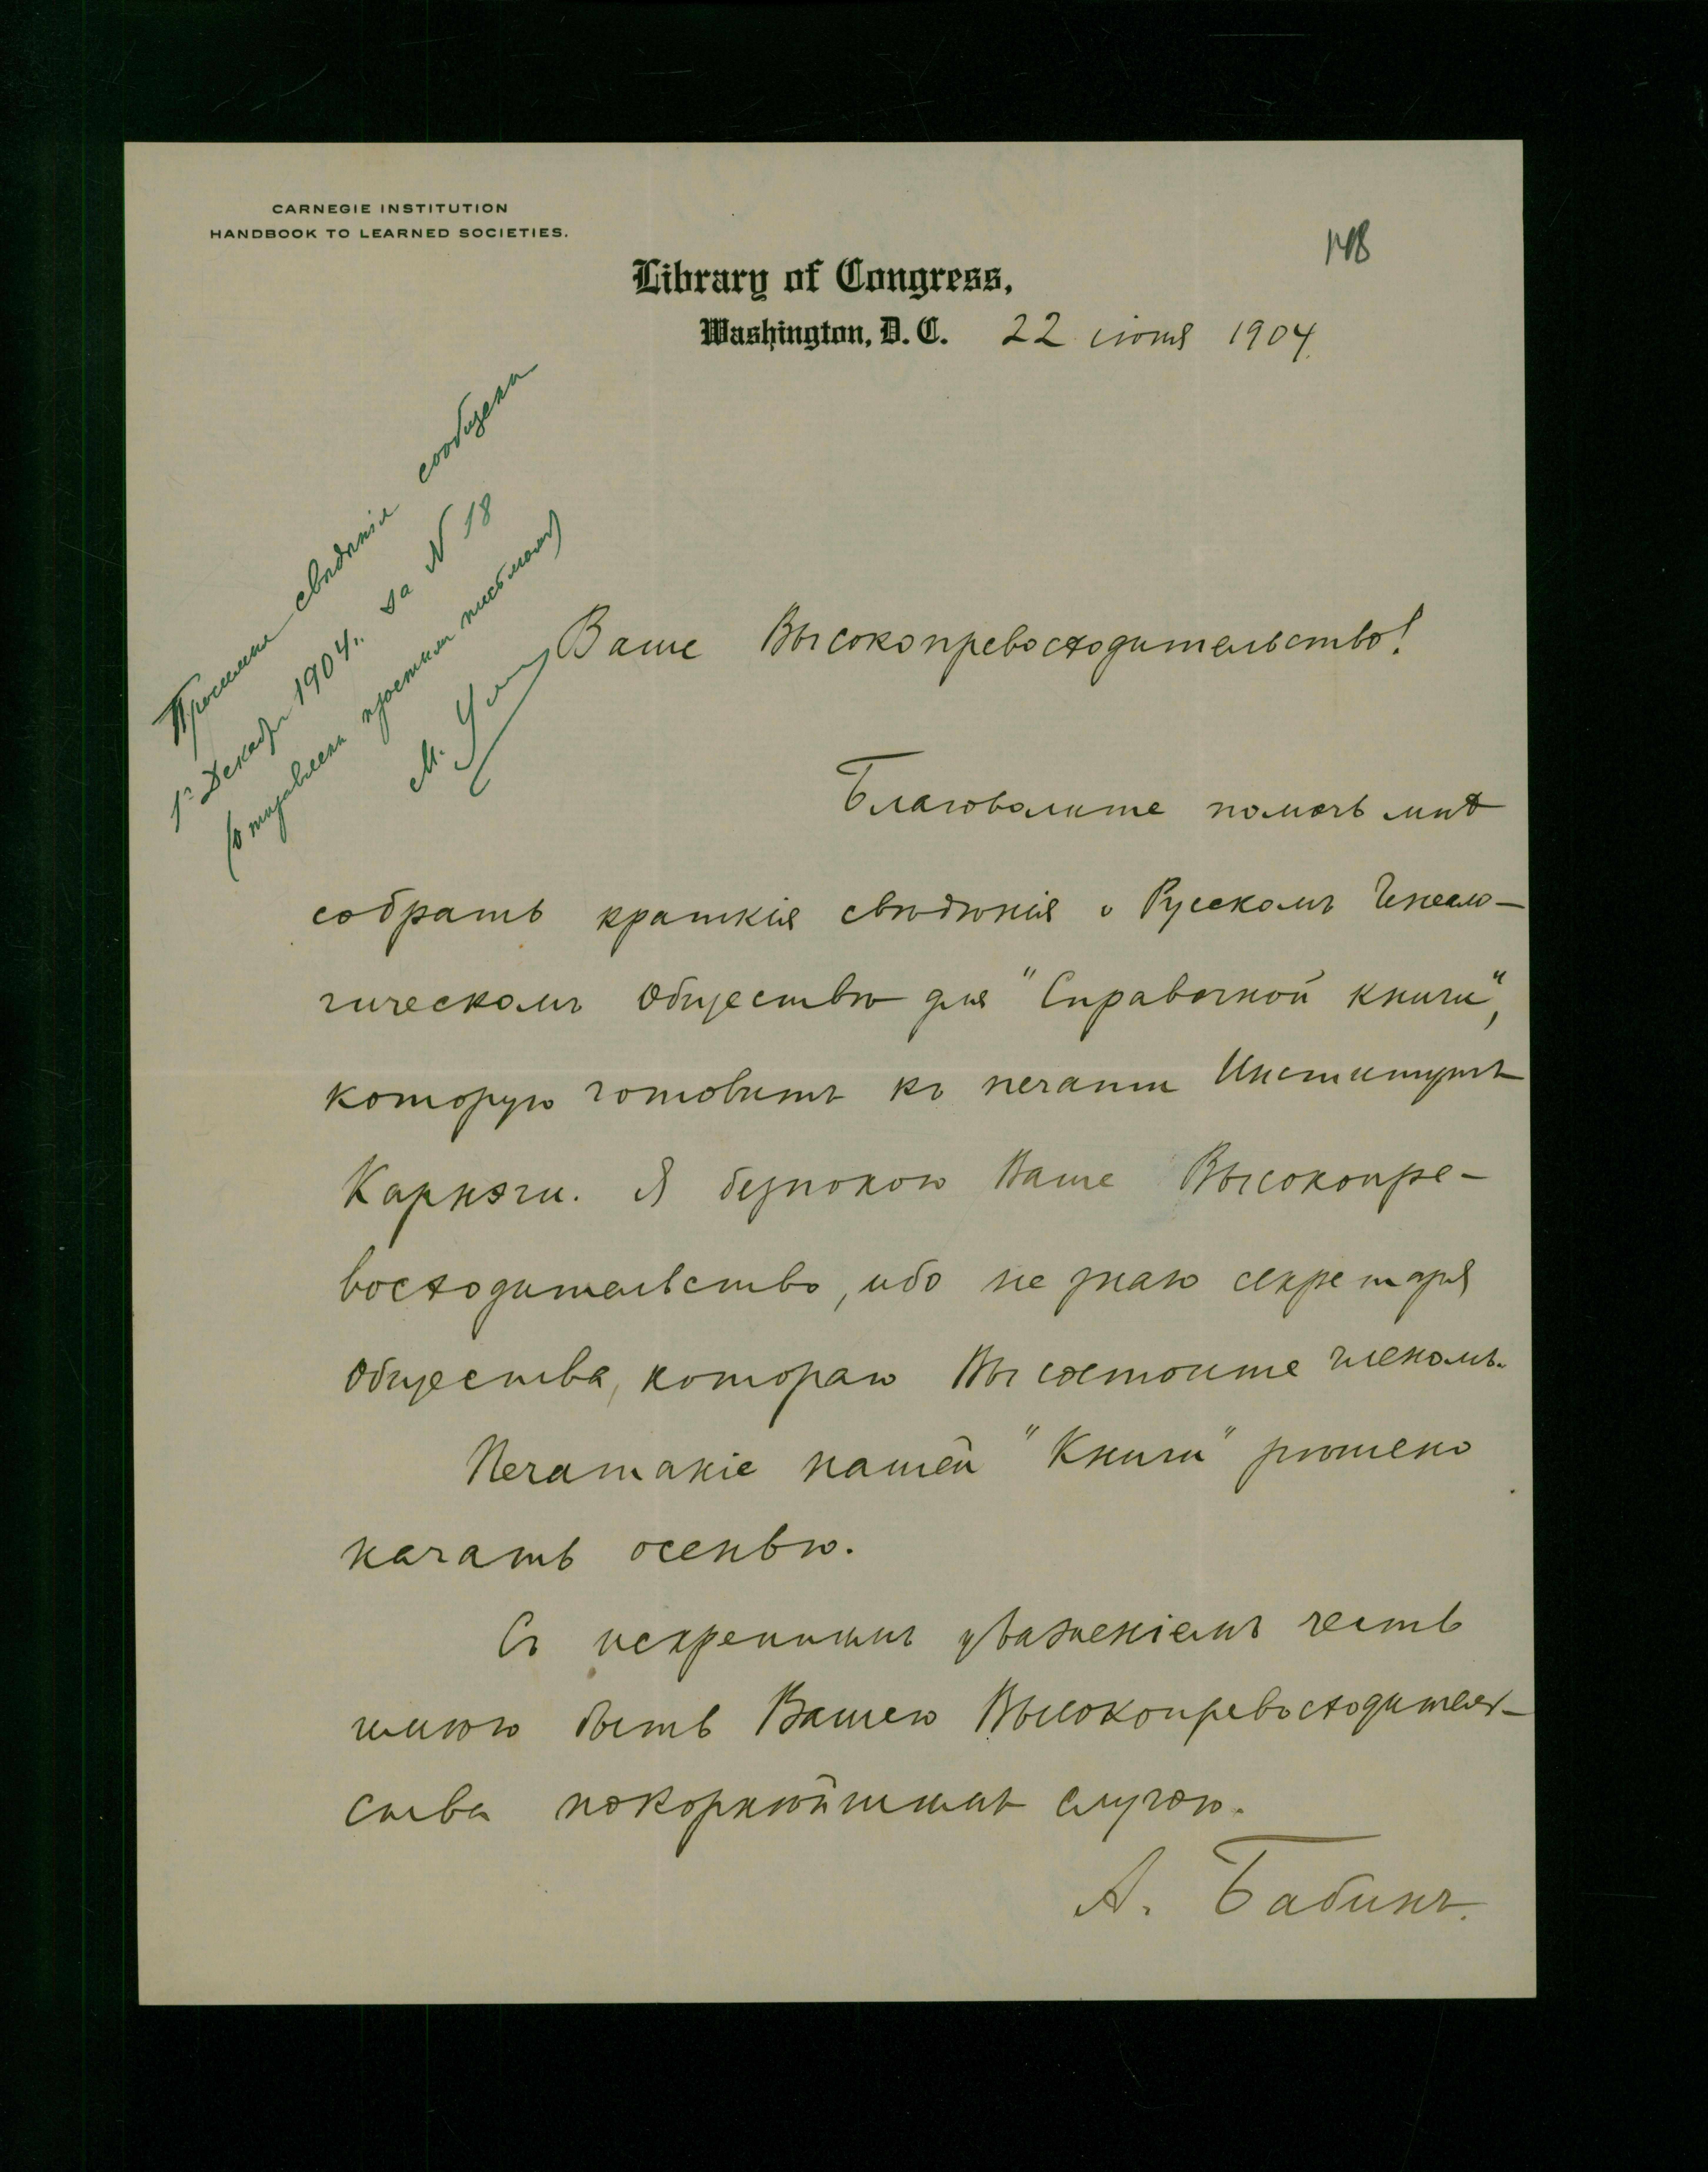 CARNEGIE INSTITUTION
HANDBOOK TO LEARNED SOCIETIES.
148
Library of Congress,
Washington, D. C. 22 июня 1904.
Просимыя свѣдѣнія сообщены
1го Декабря 1904 г. за N 18
(отправлены простымъ письмомъ)
М.
Ваше Высокопревосходительство!
Благоволите помочь мнѣ
собрать краткія свѣдѣнія о Русскомъ Генеало-
гическомъ Обществѣ для "Справочной книги",
которую готовитъ къ печати Институтъ
Карнэги. Я безпокою Ваше Высокопре-
восходительство, ибо не знаю секретаря
Общества, котораго Вы состоите членомъ.
Печатаніе нашей "Книги" рѣшено
начать осенью.
Съ искреннимъ уваженіемъ честь
имѣю быть Вашего Высокопревосходитель-
ства покорнѣйшимъ слугою.
А. Бабинъ.